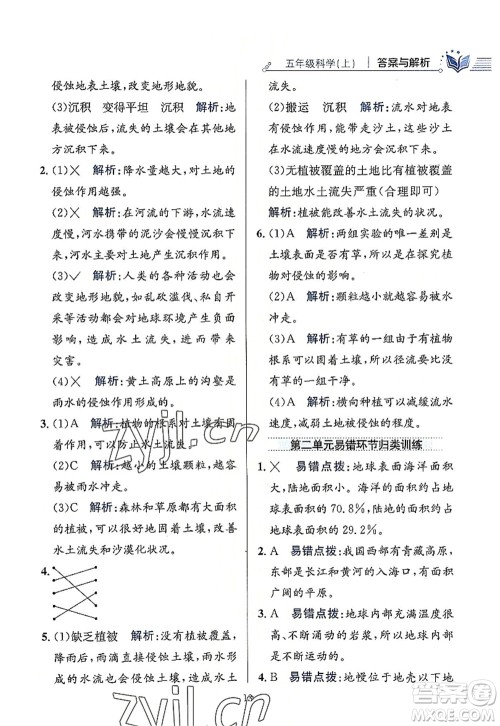 五年级科学(上) 答案与解析
侵蚀地表土壤,改变地形地貌。
(3)沉积 变得平坦 沉积 解析:地
表被侵蚀后,流失的土壤会在其他
地方沉积下来。
2. (1)× 解析:降水量越大,对土地的
侵蚀作用越强。
(2)× 解析:在河流的下游,水流速
度慢,河水携带的泥沙慢慢沉积下
来,河水对土地产生沉积作用。
(3)✓ 解析:人类的各种活动也会
改变地形地貌,影响地球环境的变
化,比如乱砍滥伐、私自挖沙采石
等,造成水土流失,进而带来
灾害。
(4)× 解析:黄土高原上的沟壑是
雨水的侵蚀作用形成的。
3. (1)A 解析:植物的根系可以固着
土壤,防止水土流失。
(2)C 解析:越小的土壤颗粒,越容
易被流水带走。
(3)C 解析:森林和草地有大面积
的植被,可以很好地固着土壤,改善
水土流失和沙漠化状况。
4.
5. (1)缺乏植被 解析:缺乏植被的土
地,降雨后,雨水会更加直接地接触
并侵蚀土地,水流会造成水土
流失。
(2)搬运 沉积 解析:流水对地表
有侵蚀、搬运、沉积的作用。
(3)无植被覆盖的土地比有植被覆盖
的土地水土流失严重(合理即可)
解析:植被能改善水土流失的状况。
6. (1)A 解析:两组实验的唯一差别是
土壤表面是否有草,目的是在探究植
物对侵蚀的影响。
(2)A 解析:颗粒越小越容易被水
冲走。
(3)A 解析:有草的一组由于有植物
根系可以固着土壤,冲走的泥沙比没
有草的一组少。
(4)B 解析:种植植物可以减缓雨水
流速,减弱雨水对土壤的冲刷。
第二单元易错环节归类训练
1. A 易错点拨:地球表面海洋面积大
于陆地面积。海洋的面积约占地球
面积的70.8%,陆地的面积约占地球
面积的29.2%。
2. A 易错点拨:我国西有青藏高原,
东部是长江和黄河的入海口,有面积
广阔的平原。
3. A 易错点拨:地球内部流动的物
质有滚烫的岩浆,岩浆只有喷出时才
可能造成火山爆发。
4. B 易错点拨:地幔位于地壳以下地
zyjl.cn
zyjl.cn